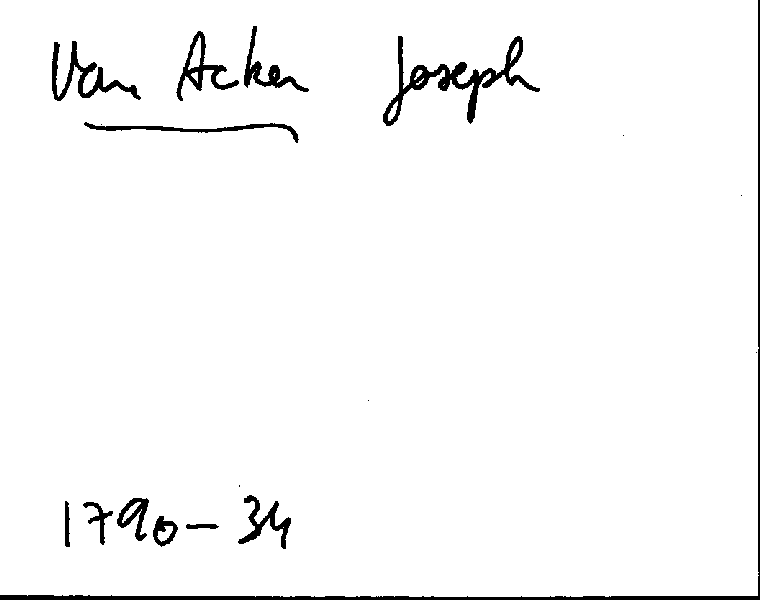 Van Acker Joseph
1790-34